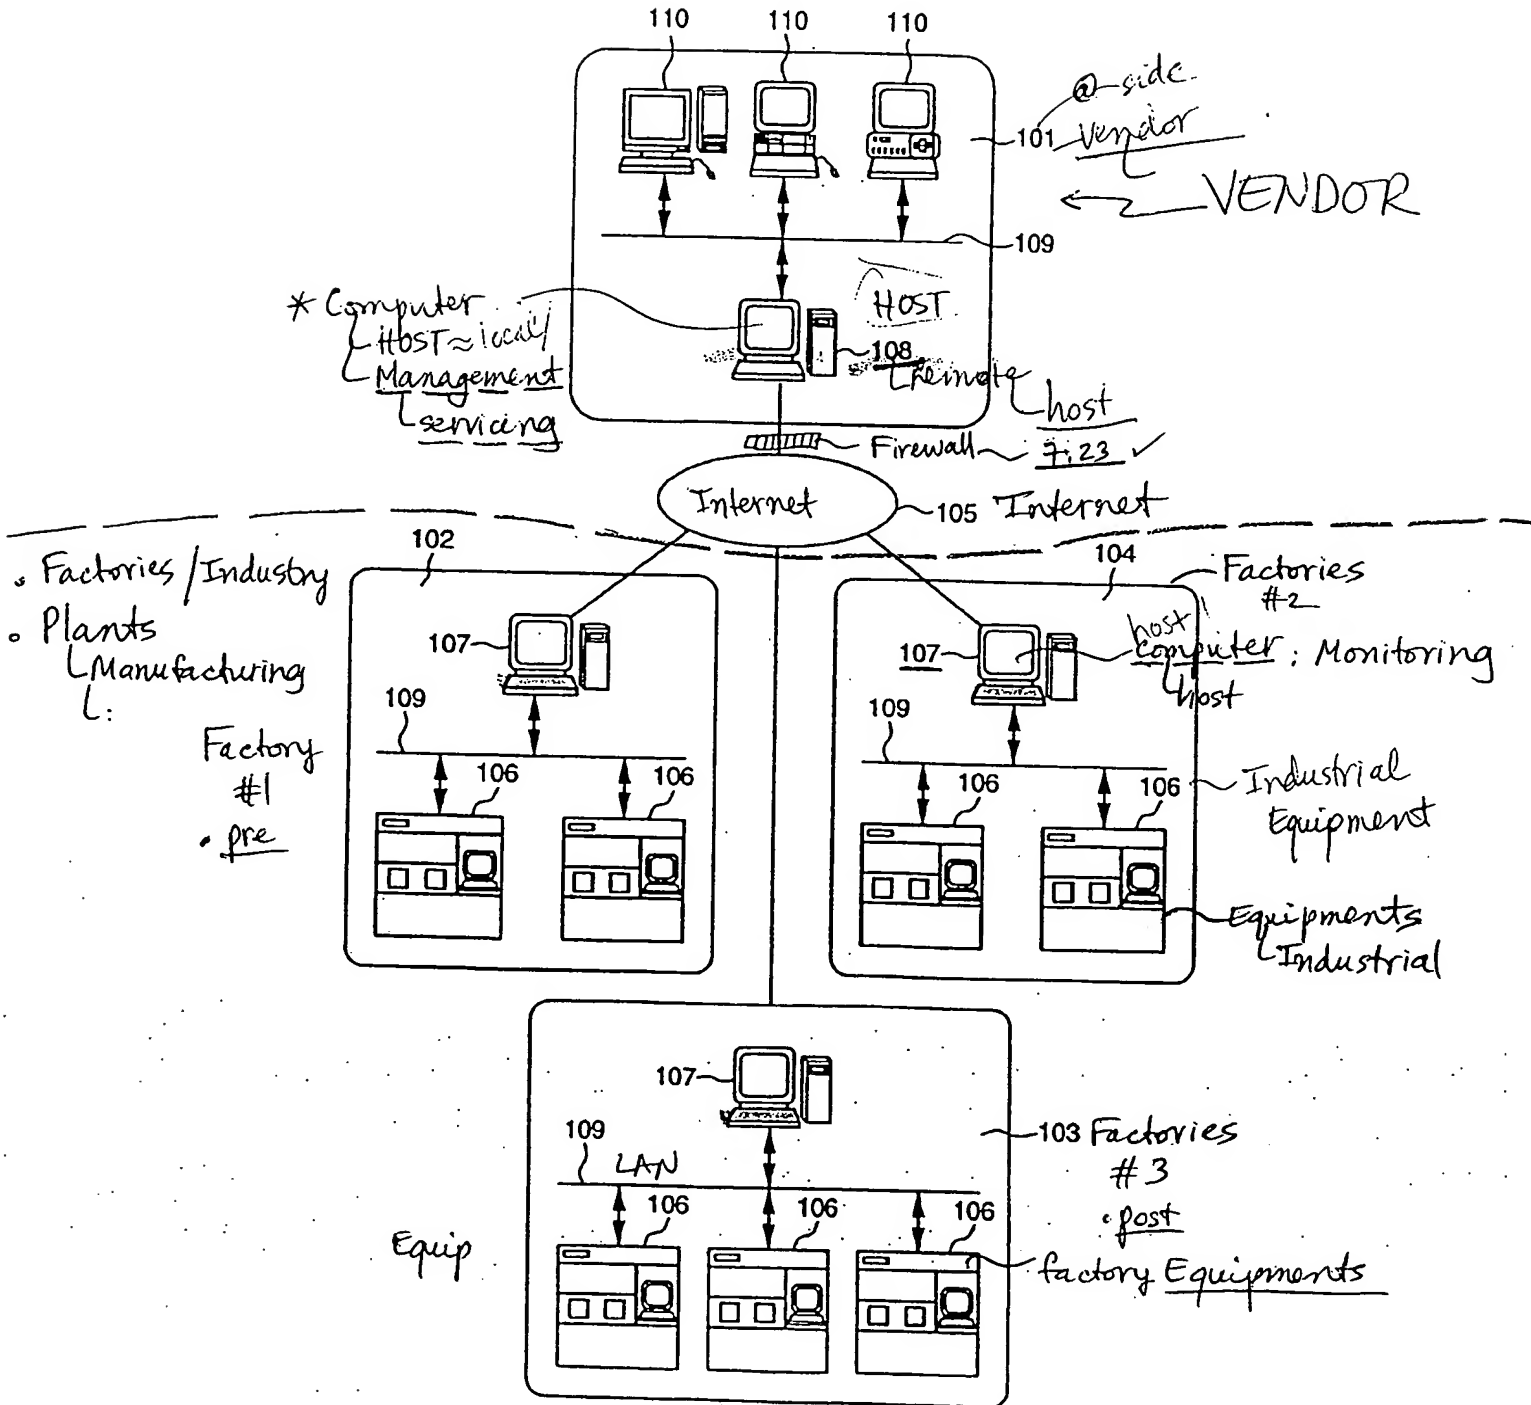 110 110 110
@ side.
101 vendor
VENDOR
109
* Computer
HOST ≈ local/
Management
servicing
HOST
108
remote
host
Firewall 7:23 ✓
Internet
105 Internet
• Factories/Industry
• Plants
Manufacturing
:
Factory
#1
• pre
102
107
109
106 106
104
Factories
#2
host
107 computer : Monitoring
host
109
106 106
Industrial
Equipment
Equipments
Industrial
107
103 Factories
#3
• post
109
LAN
106 106 106
Equip
factory Equipments